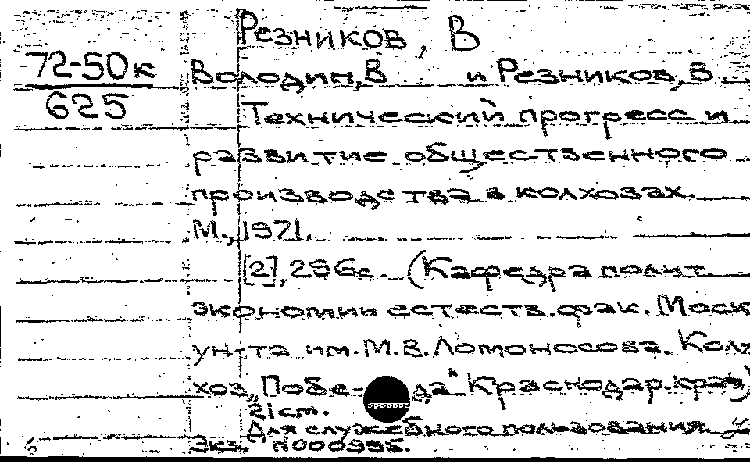 Резников, В
72-50к
625
Володин, В и Резников, В.
Технический прогресс и
развитие общественного
производства в колхозах.
М., 1971.
[2], 296с. (Кафедра полит.
экономии естеств. фак. Моск
ун-та им. М.В. Ломоносова. Колх
хоз „Побе-да" Краснодар. края)
21 см.
Для служебного пользования.
Экз. N000995.